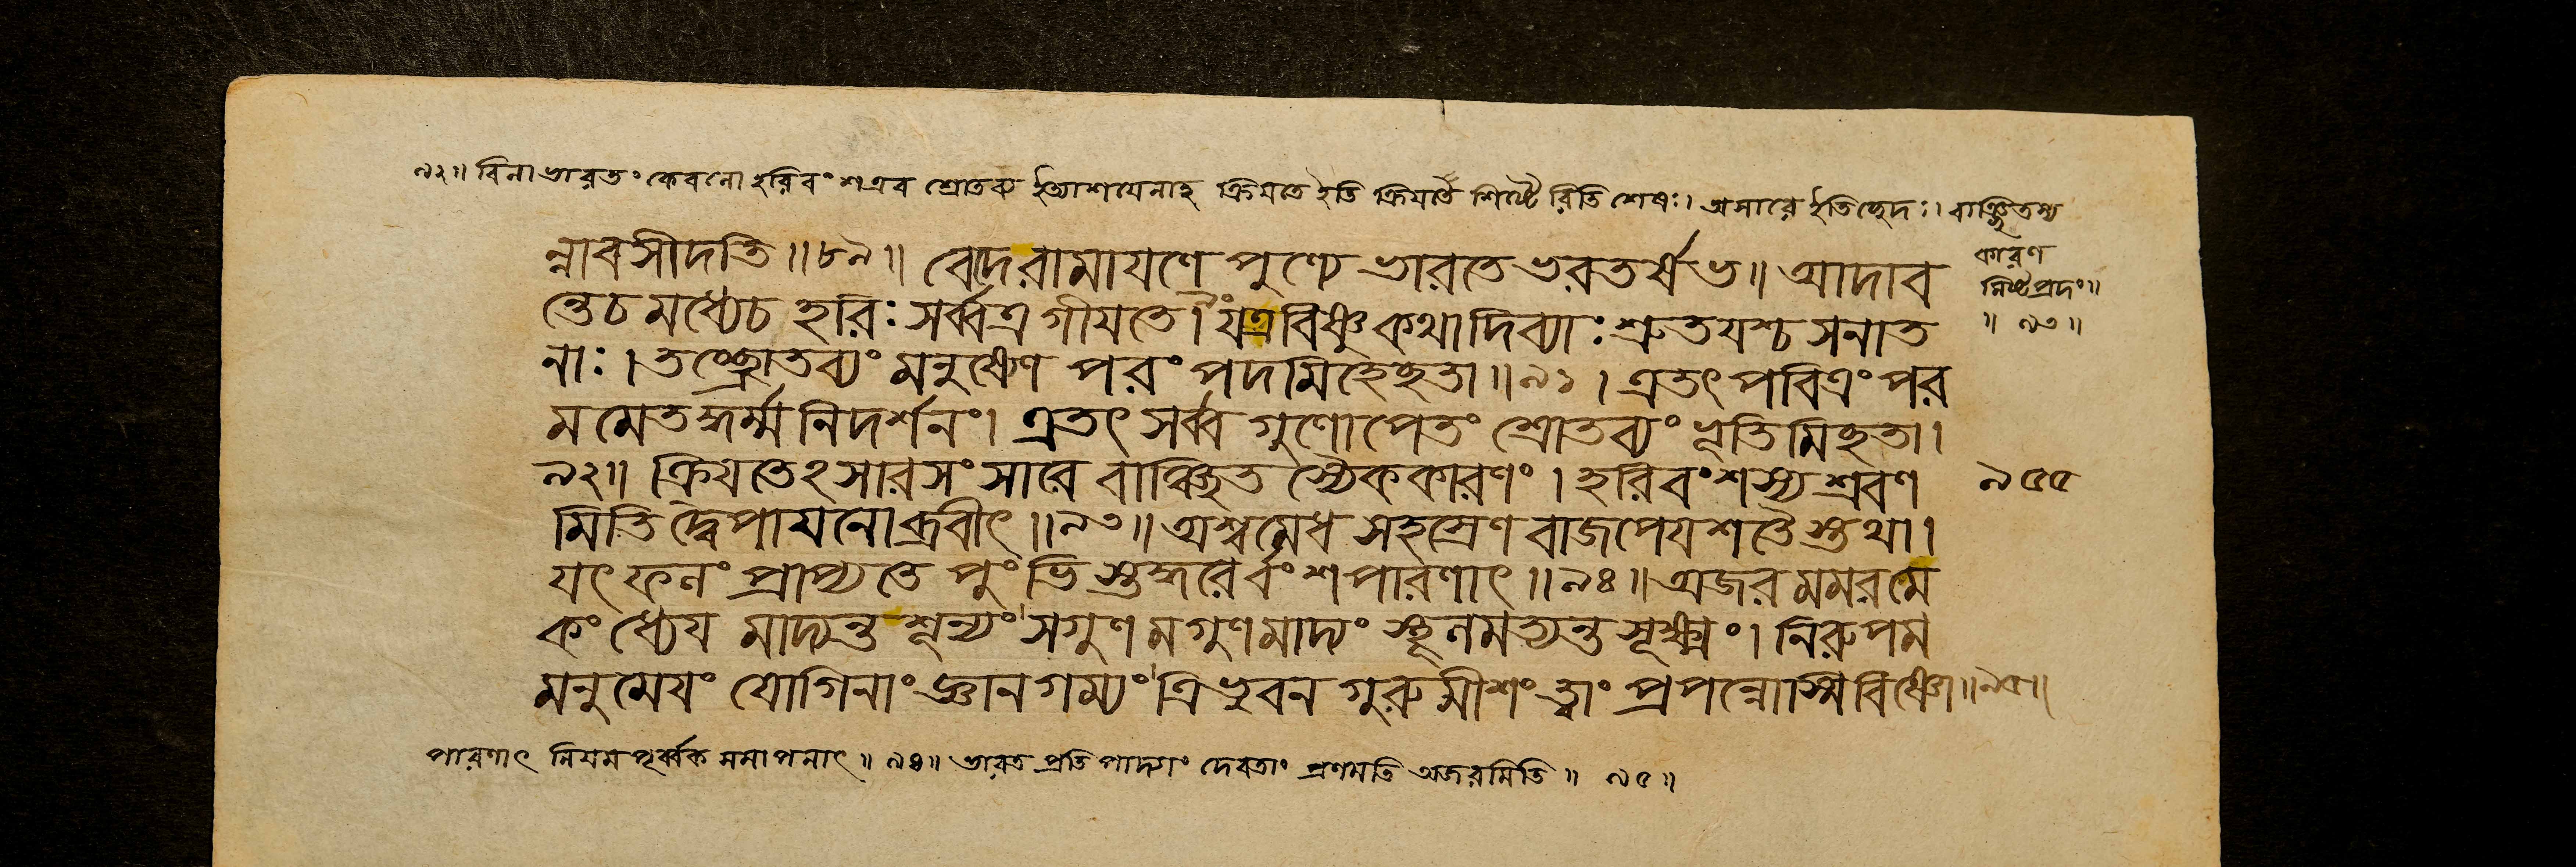 ৯২॥ বিনা ভারতং কেবলো হরিবংশ এব শ্রোতব্য ইত্যাশযেনাহ ক্রিযতে ইতি ক্রিযতে শিষ্টৈ রিতি শেষঃ। অসারে ইতিচ্ছেদঃ। বাঞ্ছিতস্য
কারণ
মিষ্টপ্রদং॥
॥ ৯৩॥
ন্নাবসীদতি॥৮৯॥ বেদে রামাযণে পুণ্যে ভারতে ভরতর্ষভ॥ আদাব
ন্তেচ মধ্যেচ হরিঃ সর্ব্বত্র গীযতে। ৯০ যত্র বিষ্ণু কথা দিব্যাঃ শ্রুতযশ্চ সনাত
নাঃ। তচ্ছ্রোতব্যং মনুষ্যেণ পরং পদমিহেচ্ছতা॥৯১। এতৎ পবিত্রং পর
মমেতদ্ধর্ম্ম নিদর্শনং। এতৎ সর্ব্ব গুণোপেতং শ্রোতব্যং ভূতিমিচ্ছতা।
৯২॥ ক্রিযতেঽসারসংসারে বাঞ্ছিত স্যৈককারণং। হরিবংশস্য শ্রবণ
মিতি দ্বৈপাযনোব্রবীৎ॥৯৩॥ অশ্বমেধ সহস্রেণ বাজপেযশতৈস্তথা।
যৎ ফলং প্রাপ্যতে পুংভি স্তদ্ধরের্বংশপারণাৎ॥৯৪॥ অজর মমরমে
কং ধ্যেয মাদ্যন্ত শূন্যং সগুণ মগুণমাদ্যং স্থূলমত্যন্ত সূক্ষ্মং। নিরুপম
মনুমেযং যোগিনাং জ্ঞানগম্যং ত্রিভুবন গুরুমীশং ত্বাং প্রপন্নোস্মি বিষ্ণো॥৯৫॥
৯৫৫
পারণাৎ নিযমপূর্ব্বক সমাপনাৎ॥ ৯৪॥ ভারত প্রতিপাদ্যাং দেবতাং প্রণমতি অজরমিতি॥ ৯৫॥